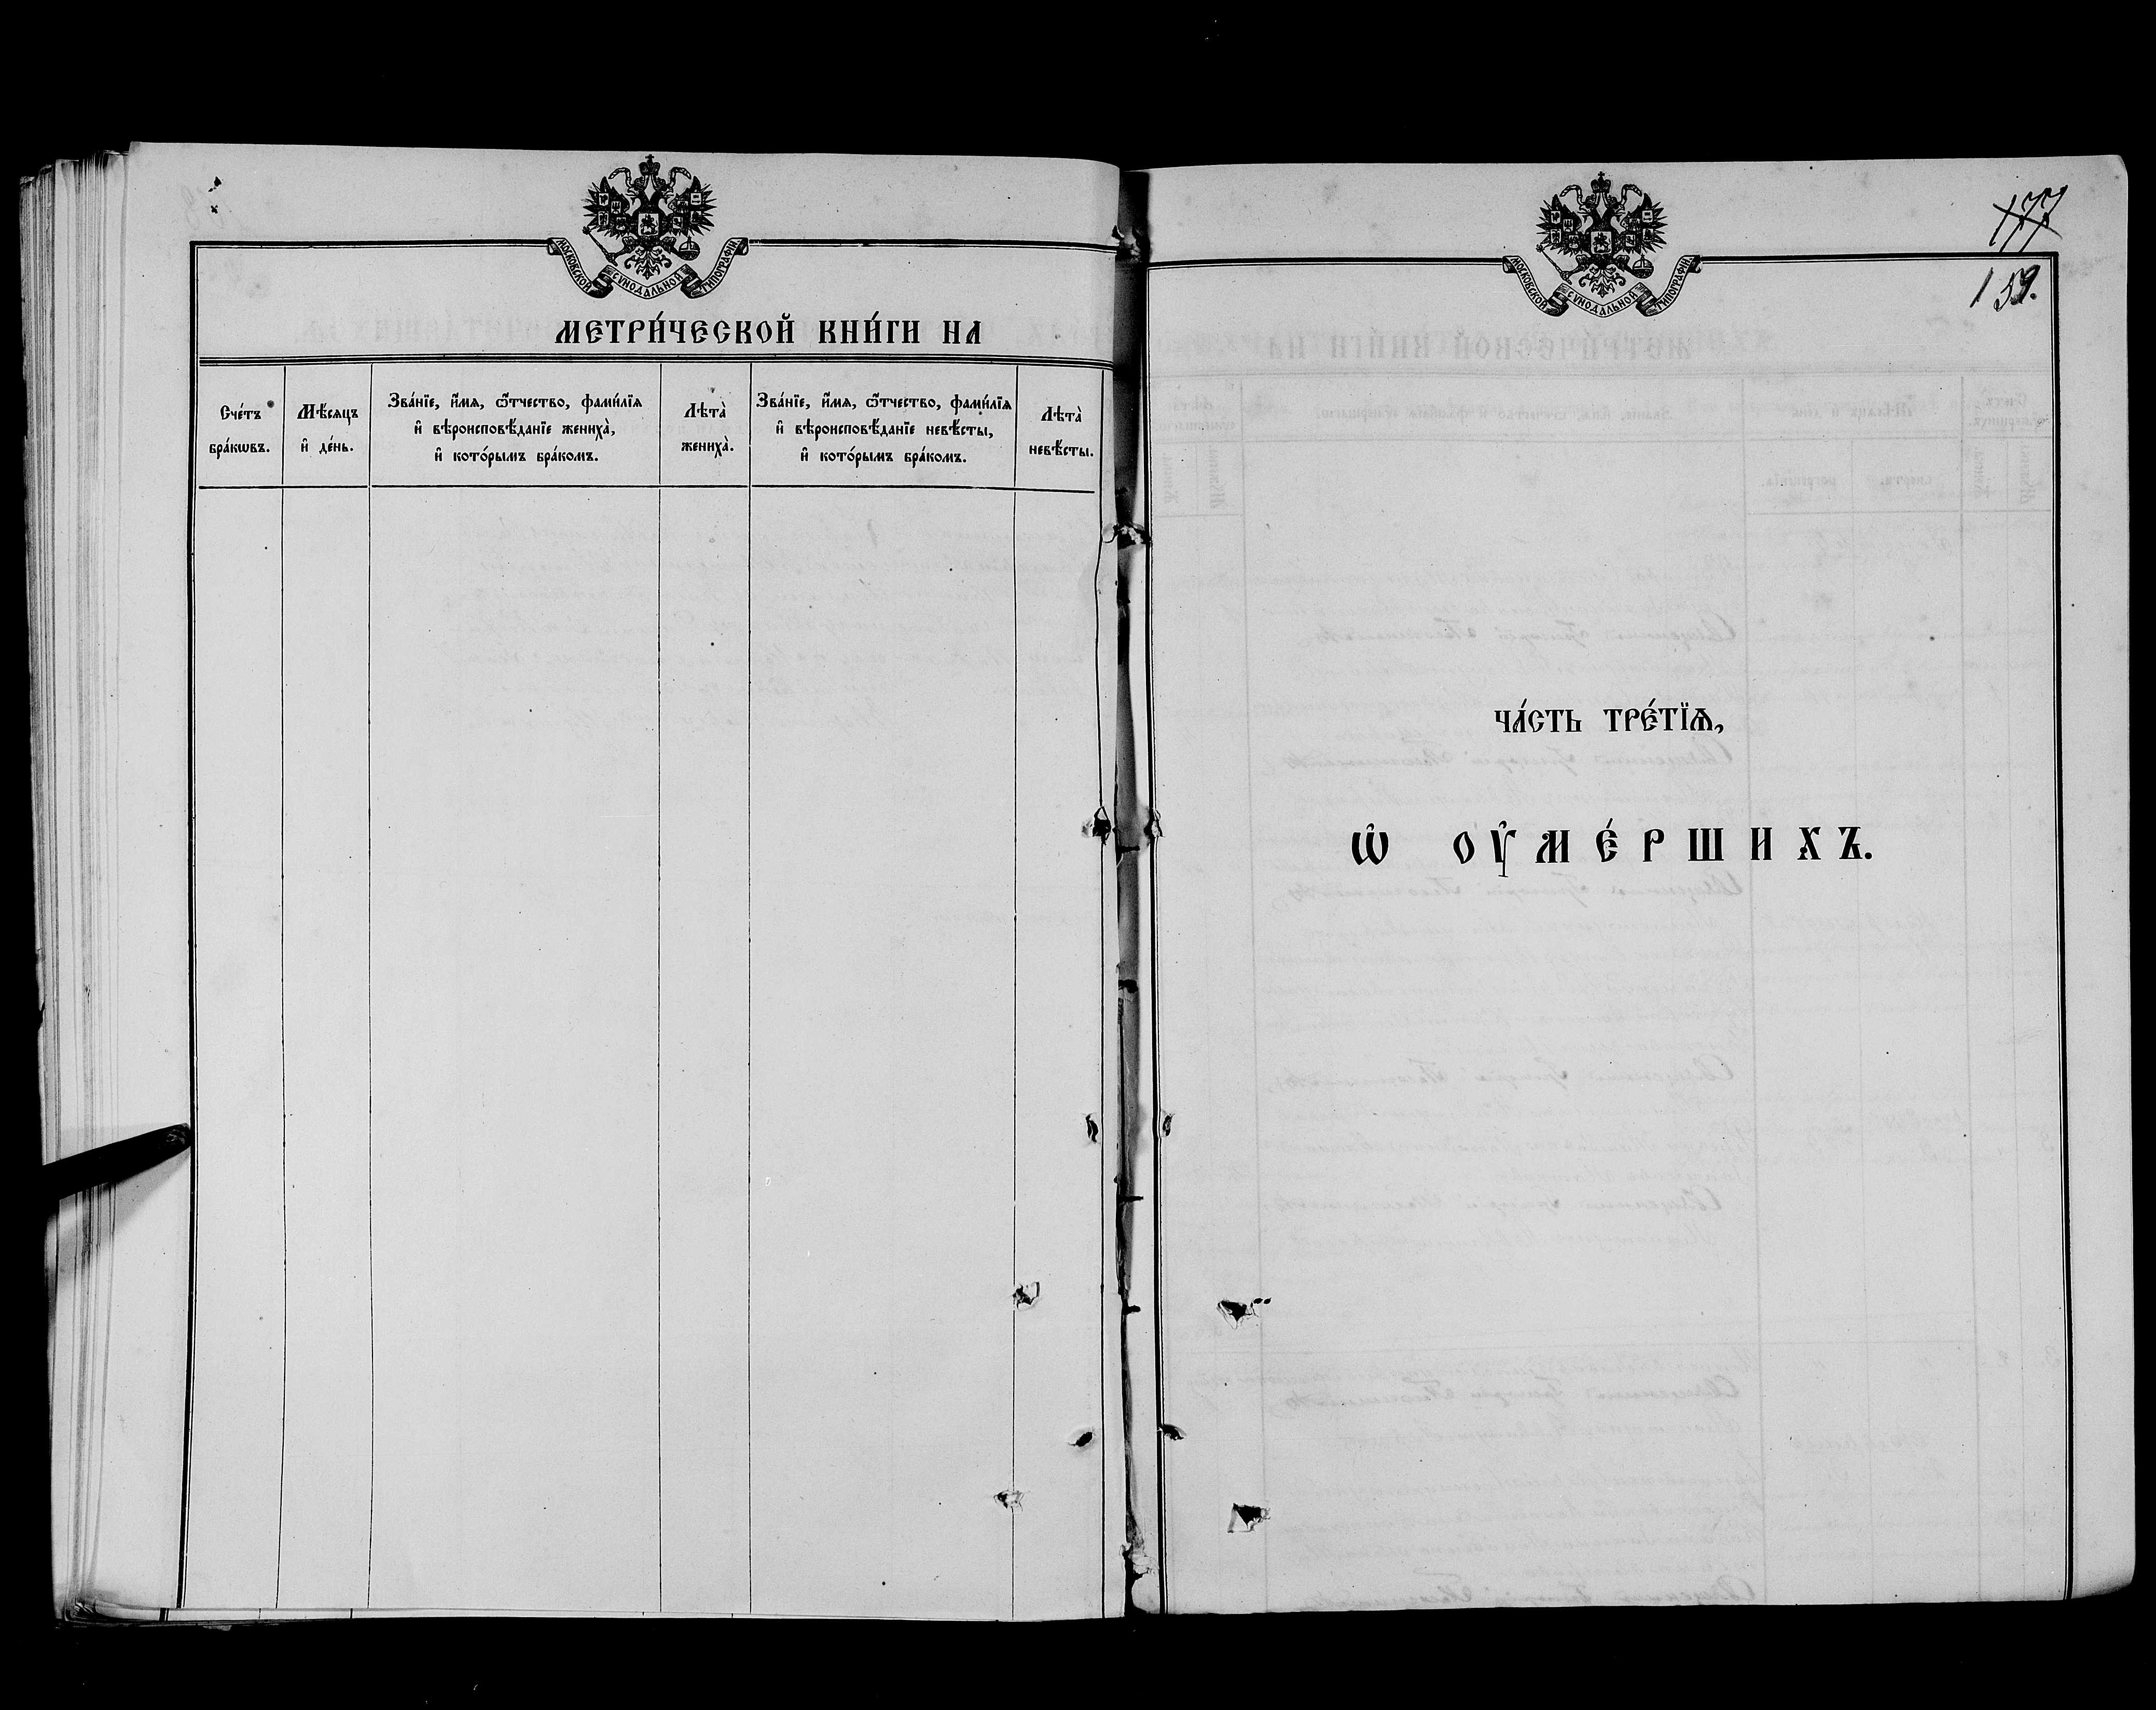 МОСКОВСКОЙ СѴНОДАЛЬНОЙ ТИПОГРАФІИ.
МЕТРИ́ЧЕСКОЙ КНИ́ГИ НА
Сче́тъ
бра́кѡвъ.
Мѣ́сяцъ
и҆ де́нь.
Зва́нїе, и҆́мя, ѻ҆́тчество, фами́лїя
и҆ вѣроисповѣ́данїе жениха̀,
и҆ кото́рымъ бра́комъ.
Лѣта̀
жениха̀.
Зва́нїе, и҆́мя, ѻ҆́тчество, фами́лїя
и҆ вѣроисповѣ́данїе невѣ́сты,
и҆ кото́рымъ бра́комъ.
Лѣта̀
невѣ́сты.
МОСКОВСКОЙ СѴНОДАЛЬНОЙ ТИПОГРАФІИ.
177
159.
ЧА́СТЬ ТРЕ́ТЇѦ,
Ѡ҆ ОУ҆МЕ́РШИХЪ.